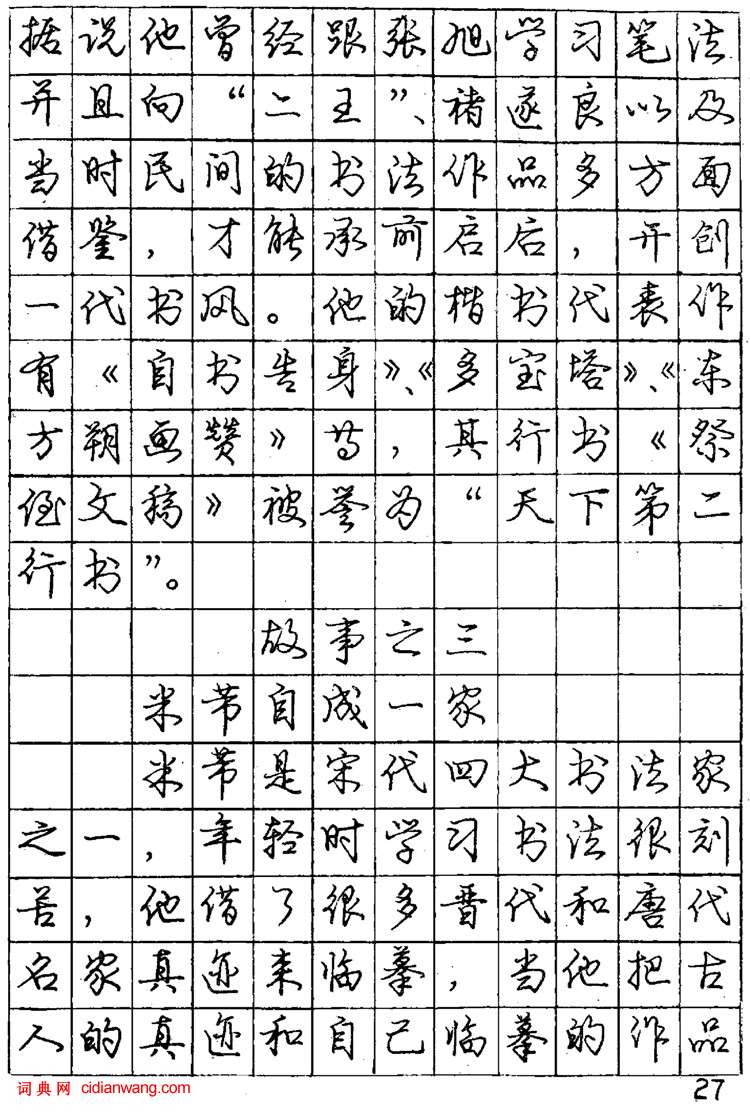 据说他曾经跟张旭学习笔法
并且向“二王”、褚遂良以及
当时民间的书法作品多方面
借鉴，才能承前启后，开创
一代书风。他的楷书代表作
有《自书告身》、《多宝塔》、《东
方朔画赞》等，其行书《祭
侄文稿》被誉为“天下第二
行书”。
故事之三
米芾自成一家
米芾是宋代四大书法家
之一，年轻时学习书法很刻
苦，他借了很多晋代和唐代
名家真迹来临摹，当他把古
人的真迹和自己临摹的作品
词典网 cidianwang.com
27